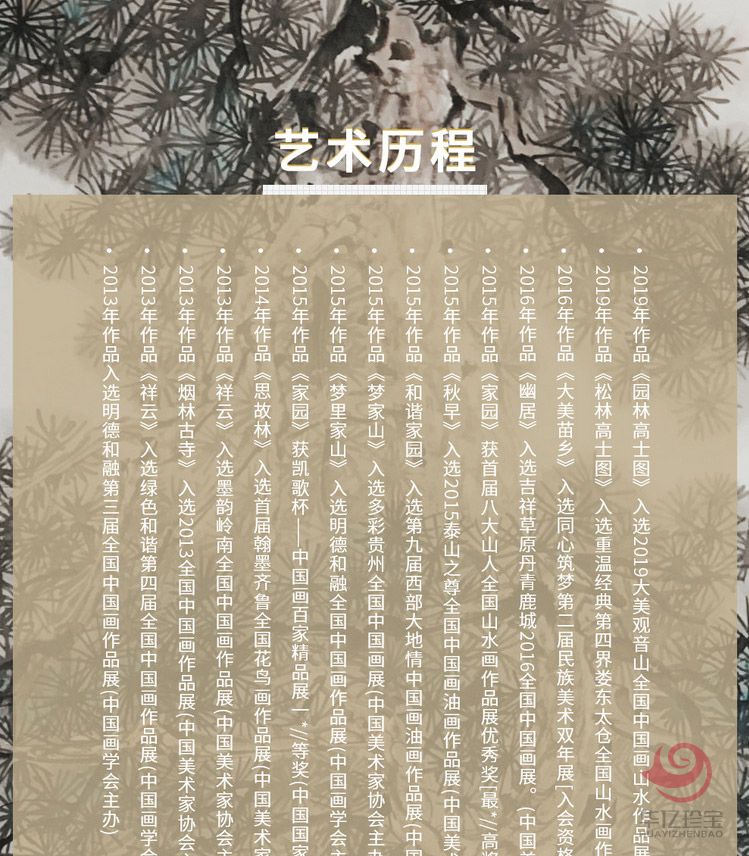 艺术历程
• 2019年作品《园林高士图》入选2019大美观音山全国中国画山水作品展
• 2019年作品《松林高士图》入选重温经典第四界娄东太仓全国山水画作
• 2016年作品《大美苗乡》入选同心筑梦第二届民族美术双年展[入会资格
• 2016年作品《幽居》入选吉祥草原丹青鹿城2016全国中国画展。(中国美
• 2015年作品《家园》获首届八大山人全国山水画作品展优秀奖[最*//高奖
• 2015年作品《秋早》入选2015泰山之尊全国中国画油画作品展(中国美术
• 2015年作品《和谐家园》入选第九届西部大地情中国画油画作品展(中国
• 2015年作品《梦家山》入选多彩贵州全国中国画展(中国美术家协会主办
• 2015年作品《梦里家山》入选明德和融全国中国画作品展(中国画学会主
• 2015年作品《家园》获凯歌杯——中国画百家精品展一*//等奖(中国国家
• 2014年作品《思故林》入选首届翰墨齐鲁全国花鸟画作品展(中国美术家
• 2013年作品《祥云》入选墨韵岭南全国中国画作品展(中国美术家协会主
• 2013年作品《烟林古寺》入选2013全国中国画作品展(中国美术家协会
• 2013年作品《祥云》入选绿色和谐第四届全国中国画作品展(中国画学会
• 2013年作品入选明德和融第三届全国中国画作品展(中国画学会主办)
华亿珍宝
HUAYIZHENBAO